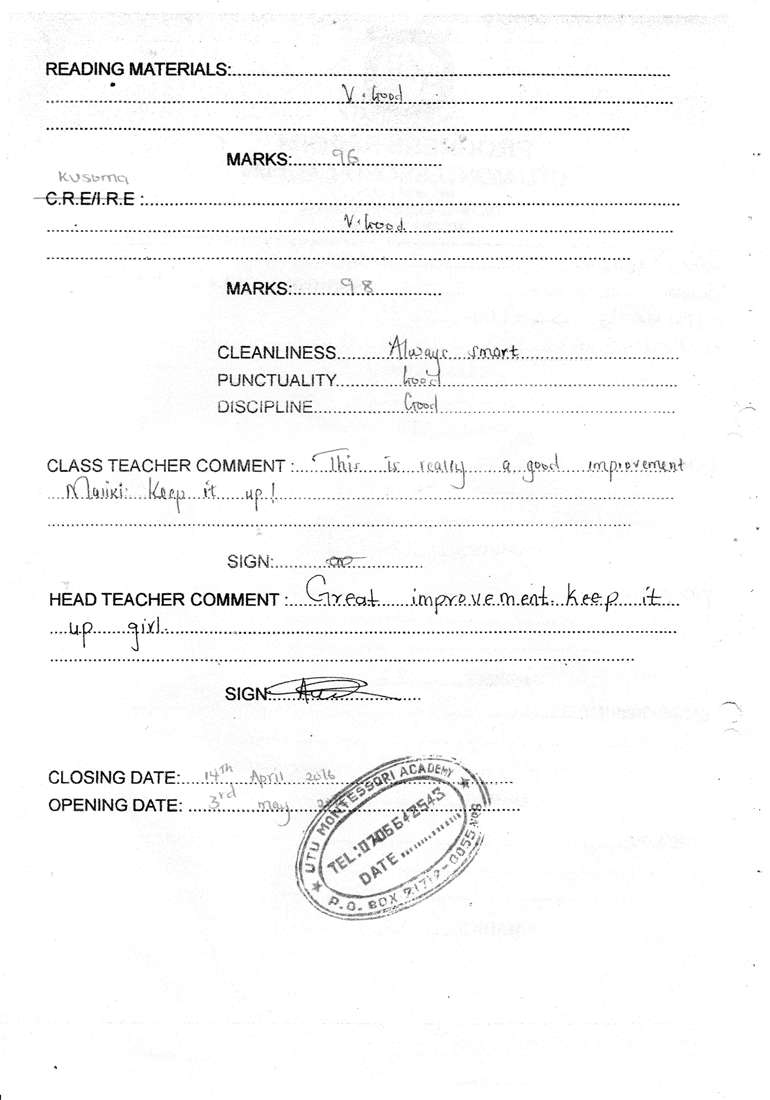 READING MATERIALS:
V. Good
MARKS: 96
Kusoma
C.R.E/I.R.E :
V. Good
MARKS: 98
CLEANLINESS Always smart
PUNCTUALITY Good
DISCIPLINE Good
CLASS TEACHER COMMENT : This is really a good improvement
Keep it up!
SIGN:
HEAD TEACHER COMMENT : Great improvement. Keep it
up girl.
SIGN:
CLOSING DATE: 14th April 2016
OPENING DATE: 3rd may
UTU MONTESSORI ACADEMY
TEL: 0706642543
DATE
P.O. BOX